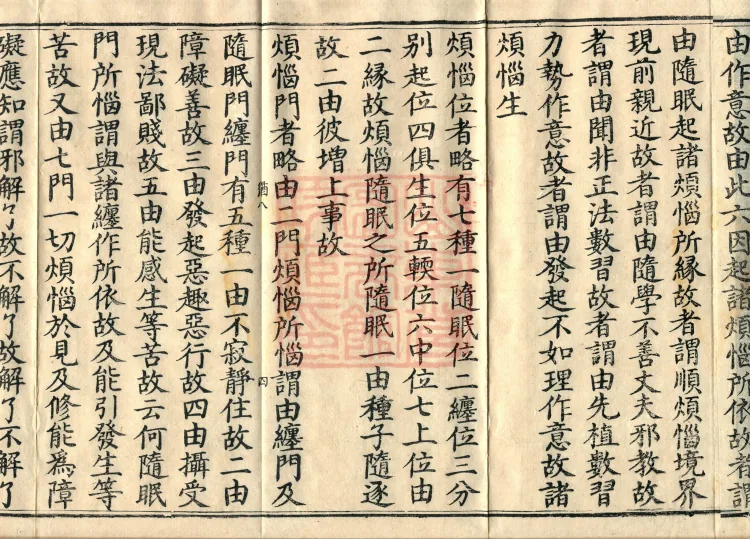 由作意故由此六因起諸煩惱所依故者謂
由隨眠起諸煩惱所緣故者謂順煩惱境界
現前親近故者謂由隨學不善丈夫邪教故
者謂由聞非正法數習故者謂由先植數習
力勢作意故者謂由發起不如理作意故諸
煩惱生
煩惱位者略有七種一隨眠位二纏位三分
別起位四俱生位五輭位六中位七上位由
二緣故煩惱隨眠之所隨眠一由種子隨逐
故二由彼增上事故
煩惱門者略由二門煩惱所惱謂由纏門及
隨眠門纏門有五種一由不寂靜住故二由
障礙善故三由發起惡趣惡行故四由攝受
現法鄙賤故五由能感生等苦故云何隨眠
門所惱謂與諸纏作所依故及能引發生等
苦故又由七門一切煩惱於見及修能爲障
礙應知謂邪解了故不解了故解了不解了